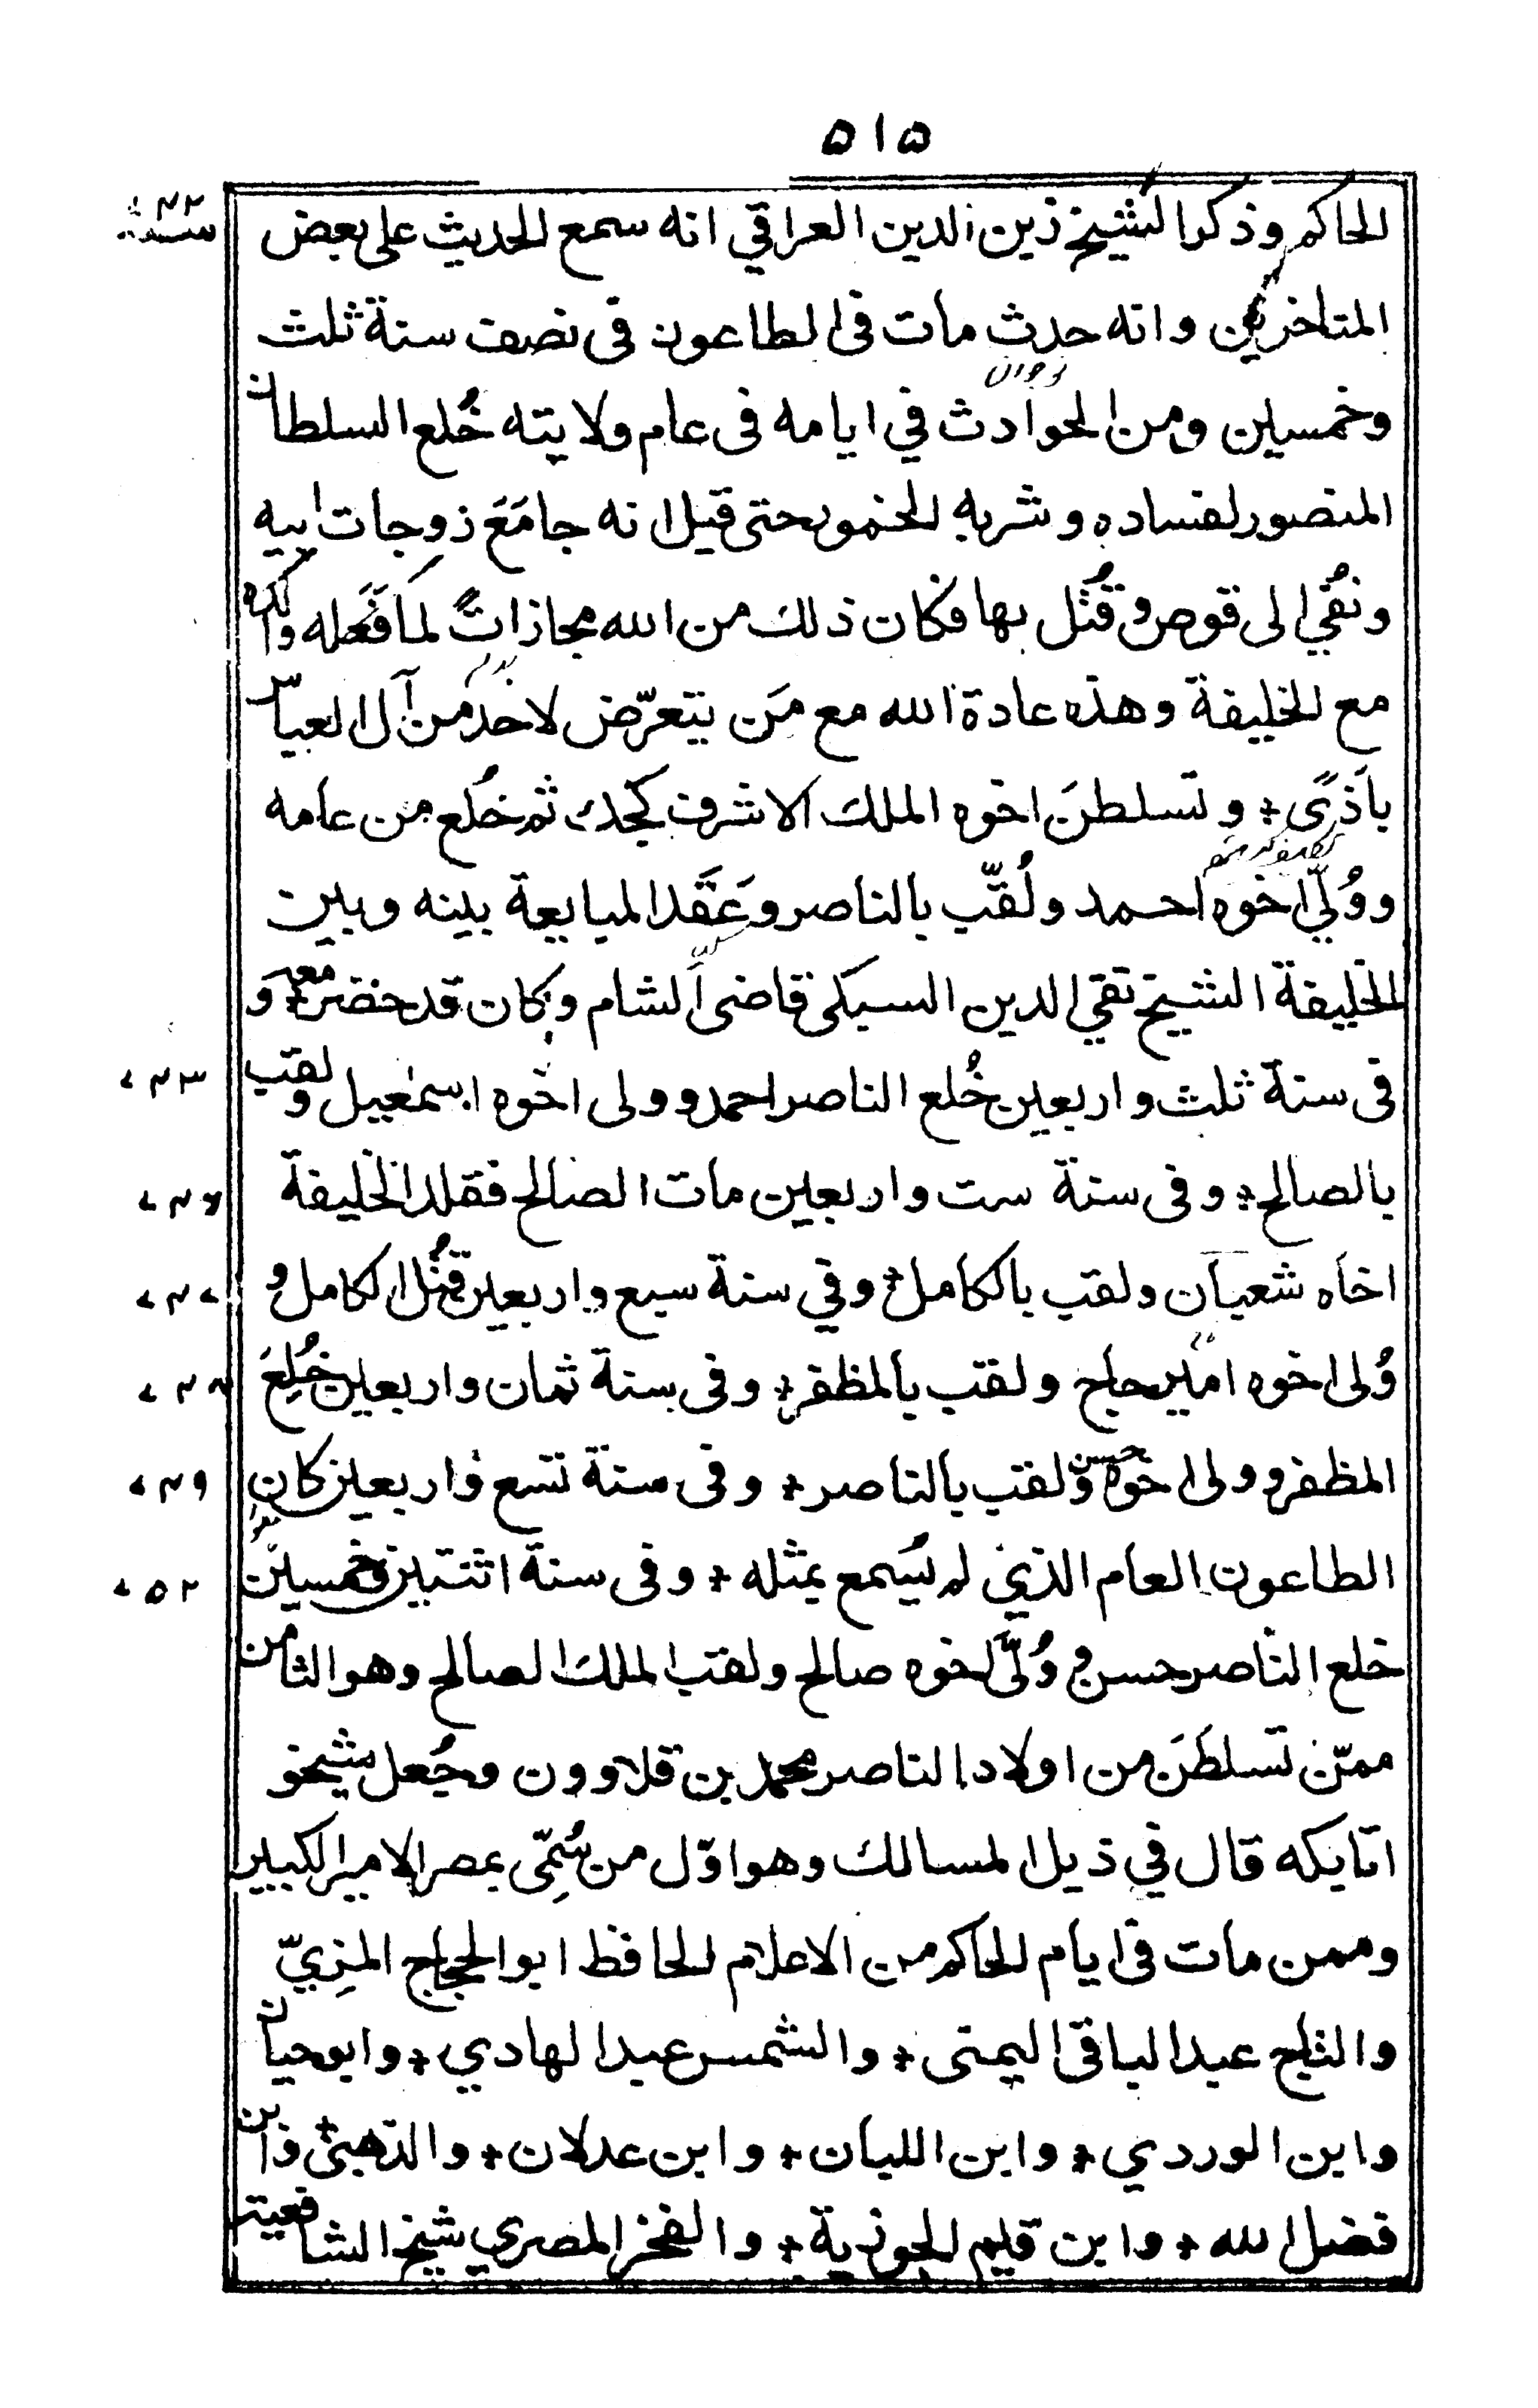 ٥١٥
الحاكم وذكر الشيخ زين الدين العراقي انه سمع الحديث على بعض
المتاخرين وانه حدث مات فى الطاعون فى نصف سنة ثلث
وخمسين ومن الحوادث في ايامه فى عام ولايته خُلع السلطان
المنصور لفساده وشربه الخمور حتى قيل انه جامَعَ زوجات ابيه
ونُفي الى قوص وقُتل بها فكان ذلك من الله مجازاتً لما فَعَله والده
مع الخليفة وهذه عادة الله مع مَن يتعرّض لاحد من آل العباس
باَذىً * وتسلطنَ اخوه الملك الاشرف كجك ثم خُلع من عامه
ووُلّي اخوه احمد ولُقّب بالناصر وعَقَد المبايعة بينه وبين
الخليفة الشيخ تقي الدين السبكى قاضى الشام وكان قد حضر معه * وَ
فى سنة ثلث واربعين خُلع الناصر احمد وولى اخوه اسمٰعيل ولقب
بالصالح * وفى سنة ست واربعين مات الصالح فقلد الخليفة
اخاه شعبان ولقب بالكامل * وفي سنة سبع واربعين قُتل الكامل و
وُلى اخوه امير حاج ولقب بالمظفر * وفى سنة ثمان واربعين خُلِعَ
المظفر وولى اخوه حسن ولقب بالناصر * وفى سنة تسع واربعين كان
الطاعون العام الذي لم يُسمع بمثله * وفى سنة اثنتين وخمسين
خلع الناصر حسن ووُلّىَ اخوه صالح ولقب الملك الصالح وهو الثامن
ممّن تسلطَنَ من اولاد الناصر محمد بن قلاوون وجُعل شيخو
اتابكه قال في ذيل المسالك وهو اوّل من سُمِّى بمصر الامير الكبير
وممن مات فى ايام الحاكم من الاعلام الحافظ ابو الحجاج المِزيّ
والتاج عبد الباقى اليمنى * والشمس عبد الهادي * وابو حيان
وابن الوردي * وابن اللبان * وابن عدلان * والذهبى * وابن
فضل الله * وابن قيم الجوزية * والفخر المصري شيخ الشافعية
٧٤٢
سنه
٧٤٣
٧٤٦
٧٤٧
٧٤٨
٧٤٩
٧٥٢